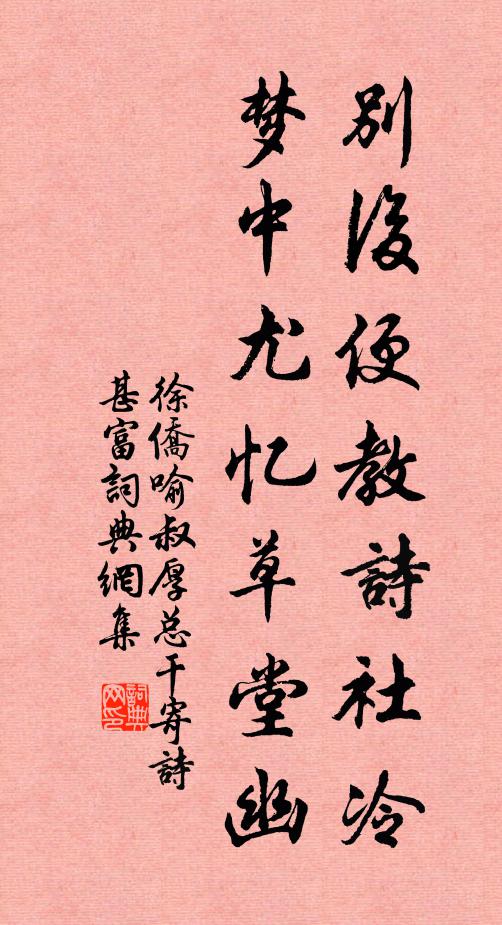 別後便教詩社冷
梦中尤忆草堂幽
徐僑喻叔厚总干寄詩
甚富詞典網集
詞典网印